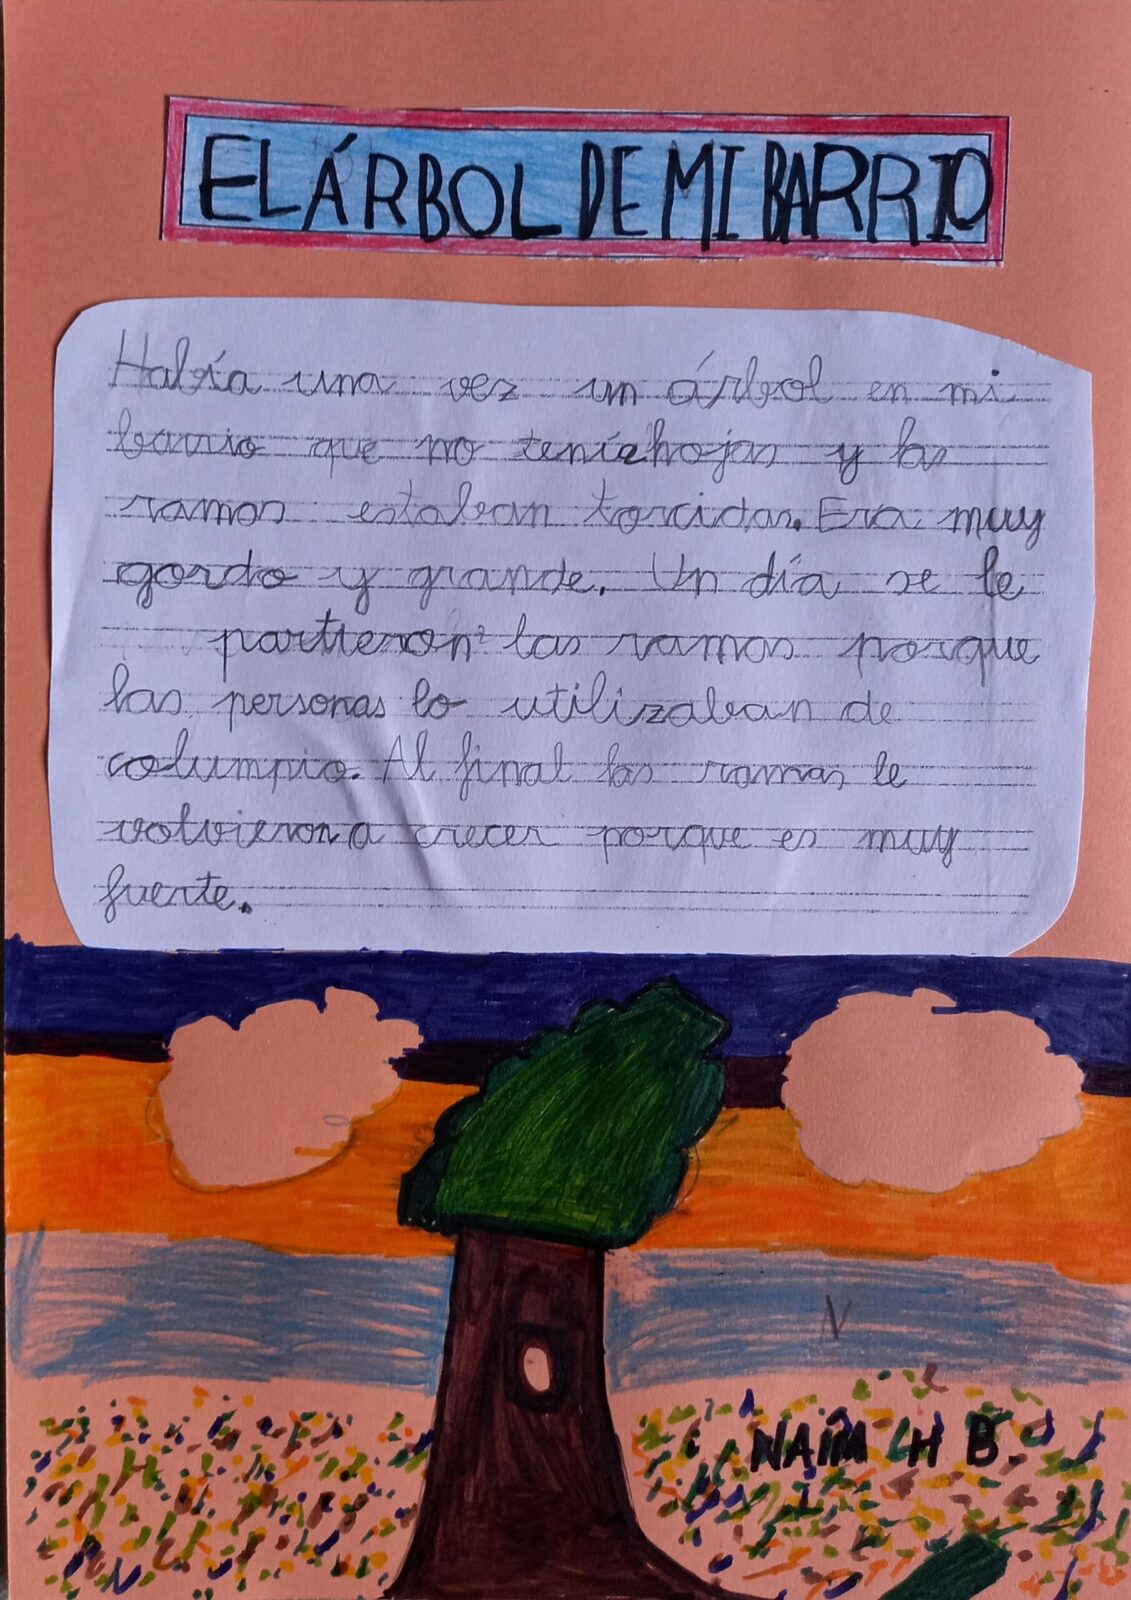 EL ÁRBOL DE MI BARRIO
Había una vez un árbol en mi
barrio que no tenía hojas y las
ramas estaban torcidas. Era muy
gordo y grande. Un día se le
partieron las ramas porque
las personas lo utilizaban de
columpio. Al final las ramas le
volvieron a crecer porque es muy
fuerte.
N
NAÍM H B.